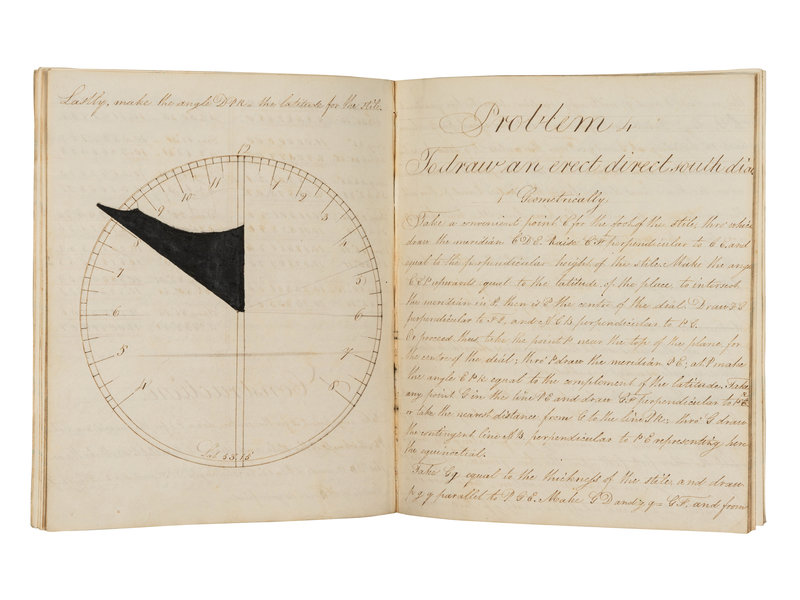 Lastly, make the angle DPK = the latitude for the stile.
12
11
1
10
2
3
4
7
5
6
6
5
7
4
8
Lat 55,15
Problem 4
To draw an erect direct south dial
1st Geometrically.
Take a convenient point C for the foot of the stile, thro' which
draw the meridian C D E. Raise C F perpendicular to C E, and
equal to the perpendicular height of the stile. Make the angle
upwards equal to the latitude of the place to intersect
the meridian in P. then is P the centre of the dial. Draw
perpendicular to and perpendicular to P C.
Or proceed thus, take the point P near the top of the plane, for
the centre of the dial; thro' P draw the meridian P E; at P make
the angle E P K equal to the complement of the latitude. Take
any point G in the line P E and draw G F perpendicular to
or take the nearest distance from G to the line P K; thro' G draw
the contingent line perpendicular to P E representing here
the equinoctial.
Take G g equal to the thickness of the stile, and draw
parallel to P G E. Make G D and = G F. and from